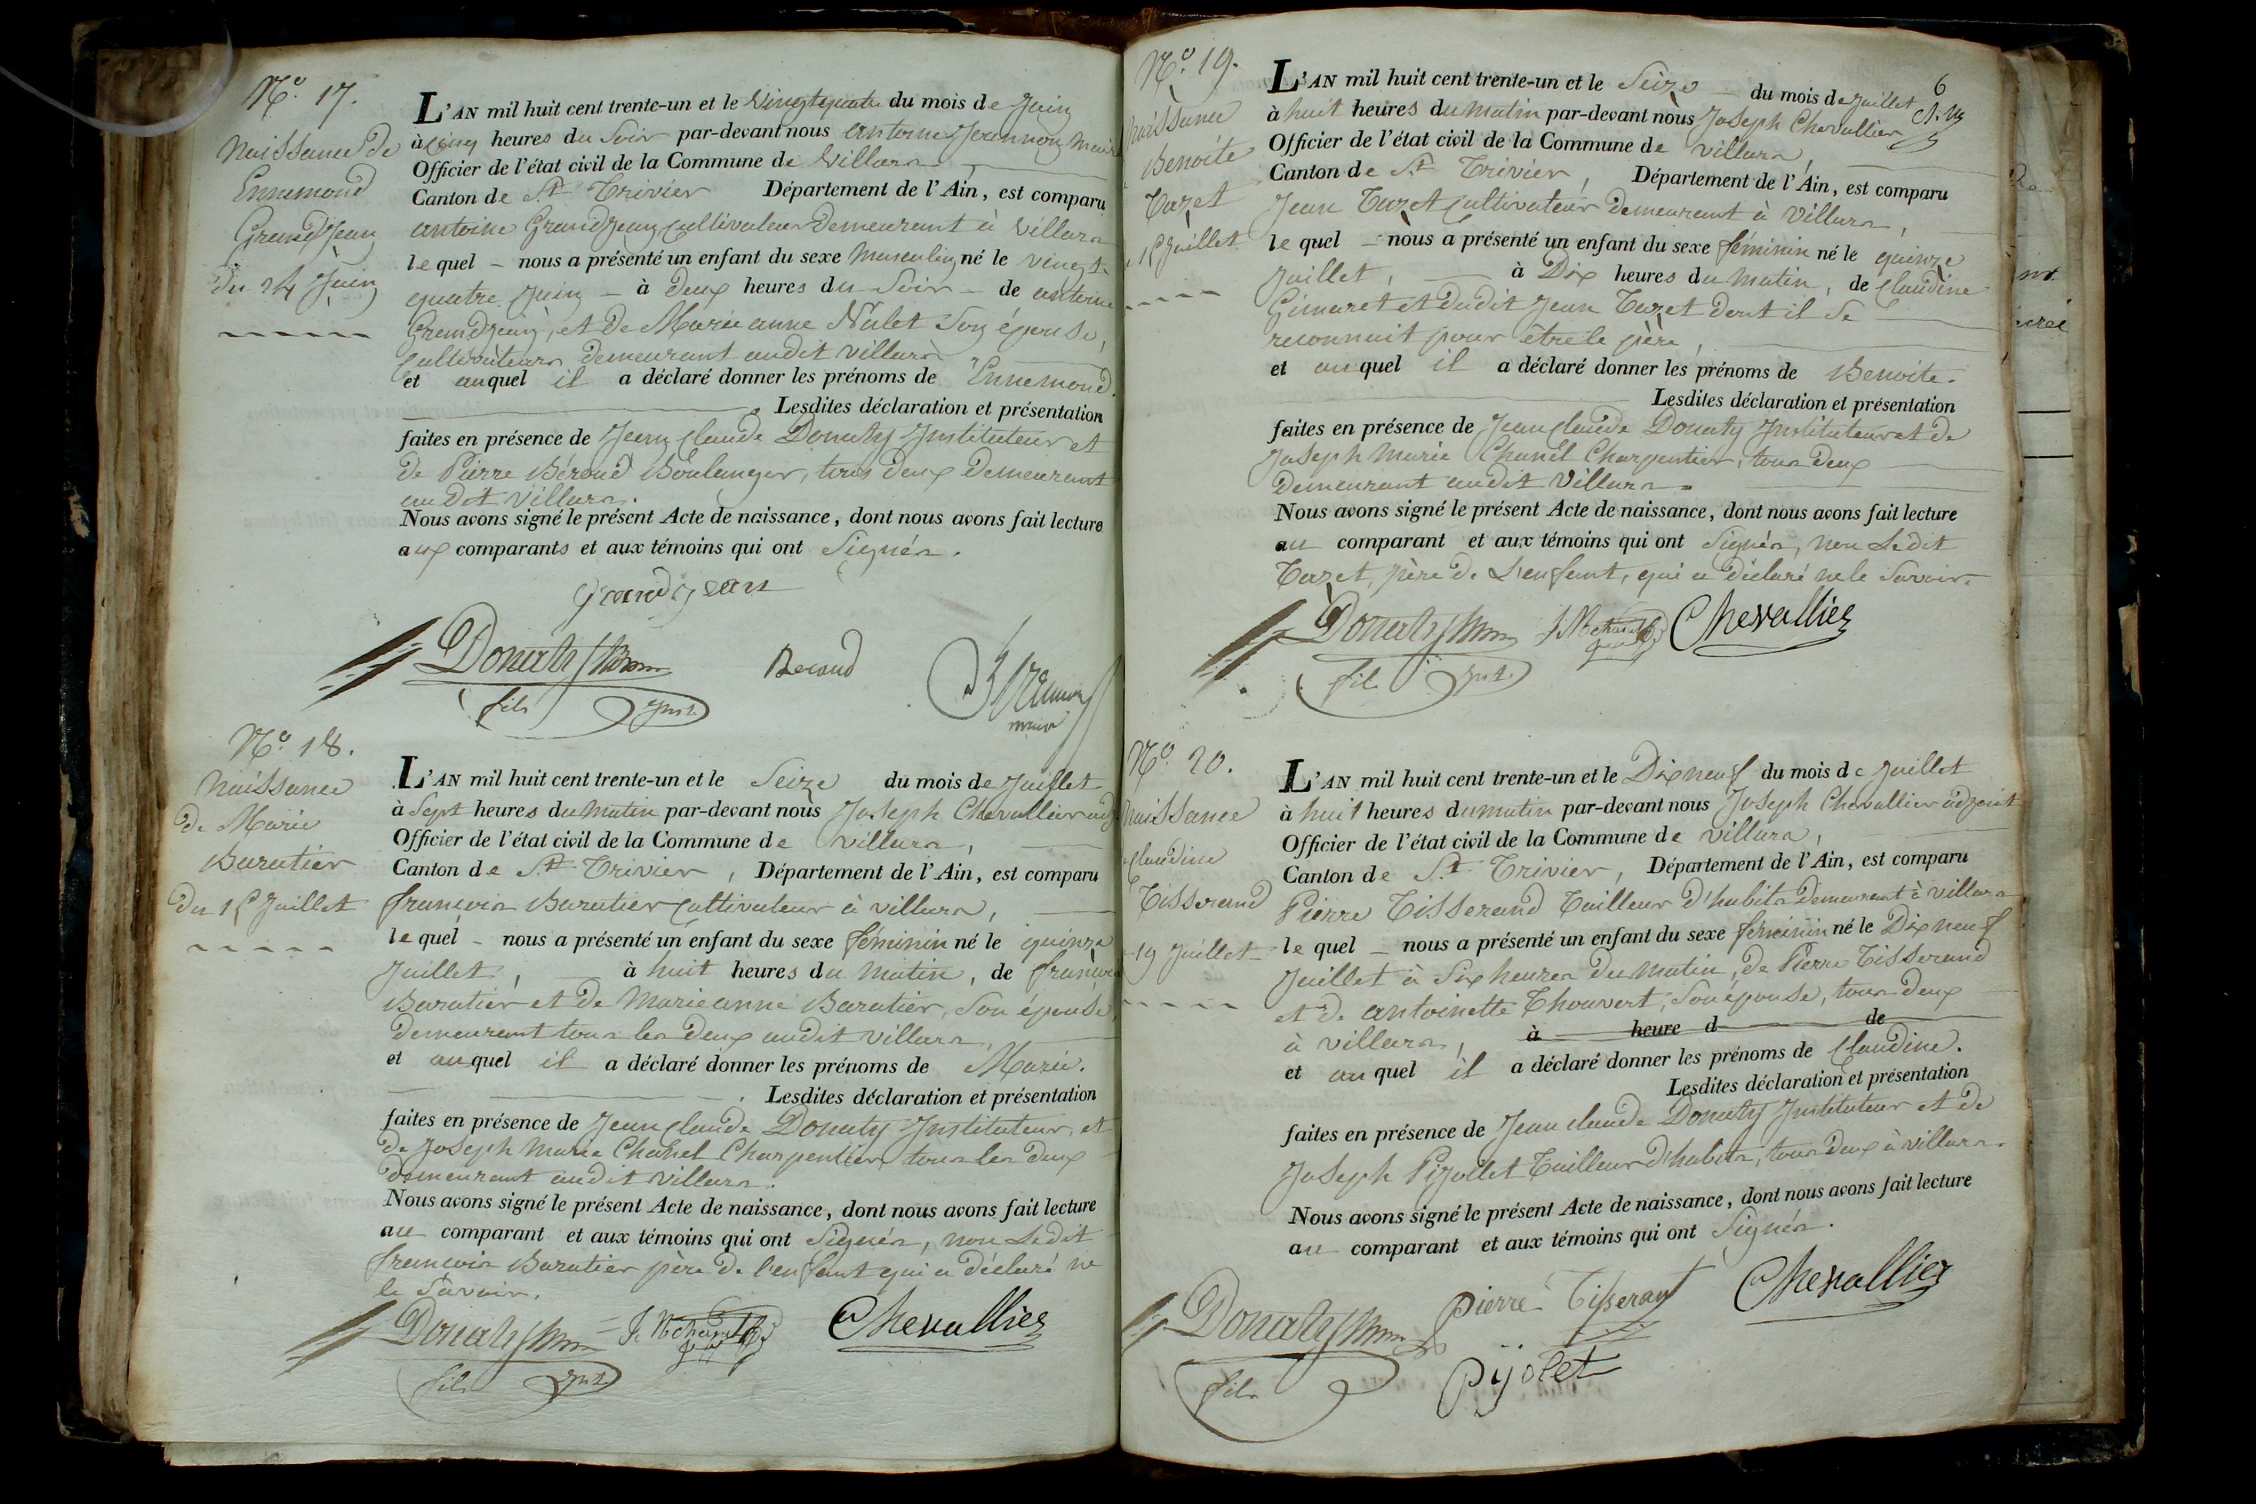 N.º 17.
Naissance de
Ennemond
Grandjean
du 24 Juin
L'AN mil huit cent trente-un et le vingtquatre du mois de Juin
à cinq heures du Soir par-devant nous antoine Jeannon Maire
Officier de l'état civil de la Commune de Villars
Canton de St. Trivier Département de l'Ain, est comparu
antoine Grandjean Cultivateur demeurant à Villars
lequel nous a présenté un enfant du sexe Masculin né le vingt-
quatre Juin à deux heures du Soir de antoine
Grandjean, et de Marie anne Nalet Son épouse,
Cultivateurs demeurant audit Villars
et auquel il a déclaré donner les prénoms de Ennemond.
Lesdites déclaration et présentation
faites en présence de Jean Claude Donaty Instituteur et
de Pierre Béroud Boulanger, tous deux demeurant
audit Villars.
Nous avons signé le présent Acte de naissance, dont nous avons fait lecture
aux comparants et aux témoins qui ont Signés.
grandjean
Donaty
fils inst.
Beroud
maire
N.º 18.
Naissance
de Marie
Baratier
du 15 Juillet
L'AN mil huit cent trente-un et le Seize du mois de Juillet
à Sept heures du Matin par-devant nous Joseph Chevallier adj
Officier de l'état civil de la Commune de Villars,
Canton de St. Trivier, Département de l'Ain, est comparu
françois Baratier Cultivateur à Villars,
lequel nous a présenté un enfant du sexe féminin né le quinze
Juillet, à huit heures du Matin, de françois
Baratier et de Marie anne Baratier, Son épouse,
demeurant tous les deux audit Villars,
et auquel il a déclaré donner les prénoms de Marie.
Lesdites déclaration et présentation
faites en présence de Jean Claude Donaty Instituteur, et
de Joseph Marie Chanel Charpentier tous les deux
demeurant audit Villars.
Nous avons signé le présent Acte de naissance, dont nous avons fait lecture
au comparant et aux témoins qui ont Signés, non Ledit
françois Baratier père de l'enfant qui a déclaré ne
le Savoir.
Donaty
fils inst
Chevallier
6
N.º 19.
Naissance
Benoite
Tazet
15 Juillet
L'AN mil huit cent trente-un et le Seize du mois de Juillet
à huit heures du Matin par-devant nous Joseph Chevallier
Officier de l'état civil de la Commune de Villars
Canton de St. Trivier, Département de l'Ain, est comparu
Jean Tazet Cultivateur demeurant à Villars,
lequel nous a présenté un enfant du sexe féminin né le quinze
Juillet, à Dix heures du Matin, de Claudine
Gimaret et dudit Jean Tazet dont il Se
reconnait pour être le père,
et auquel il a déclaré donner les prénoms de Benoite.
Lesdites déclaration et présentation
faites en présence de Jean Claude Donaty Instituteur et de
Joseph Marie Chanel Charpentier, tous deux
demeurant audit Villars.
Nous avons signé le présent Acte de naissance, dont nous avons fait lecture
au comparant et aux témoins qui ont Signés, non Ledit
Tazet, père de L'enfant, qui a déclaré ne le Savoir.
Donaty
fils inst.
Chevallier
N.º 20.
Naissance
Claudine
Tisserand
19 Juillet
L'AN mil huit cent trente-un et le Dix neuf du mois de Juillet
à huit heures du matin par-devant nous Joseph Chevallier adjoint
Officier de l'état civil de la Commune de Villars,
Canton de St. Trivier, Département de l'Ain, est comparu
Pierre Tisserand Tailleur d'habits demeurant à Villars
lequel nous a présenté un enfant du sexe féminin né le Dix neuf
Juillet à Six heures du Matin, de Pierre Tisserand
et de antoinette Thouvert, Son épouse, tous deux
à Villars, à heure d de
et auquel il a déclaré donner les prénoms de Claudine.
Lesdites déclaration et présentation
faites en présence de Jean Claude Donaty Instituteur et de
Joseph Pijollet Tailleur d'habits, tous deux à Villars.
Nous avons signé le présent Acte de naissance, dont nous avons fait lecture
au comparant et aux témoins qui ont Signés.
Donaty
fils
pierre Tisserant
Chevallier
pijolet